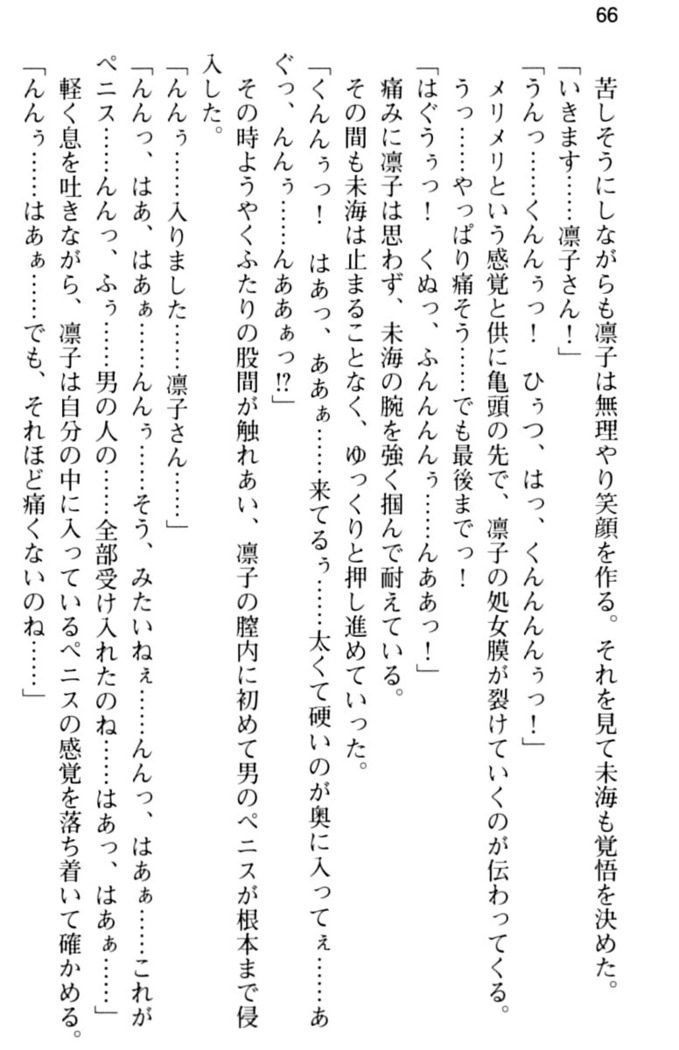 66
苦しそうにしながらも凛子は無理やり笑顔を作る。それを見て未海も覚悟を決めた。
「いきます……凛子さん！」
「うんっ……くんんぅっ！　ひぅつ、はっ、くんんんんぅっ！」
メリメリという感覚と供に亀頭の先で、凛子の処女膜が裂けていくのが伝わってくる。
うっ……やっぱり痛そう……でも最後までっ！
「はぐうぅっ！　くぬっ、ふんんんんぅ……んああっ！」
痛みに凛子は思わず、未海の腕を強く掴んで耐えている。
その間も未海は止まることなく、ゆっくりと押し進めていった。
「くんんぅっ！　はあっ、ああぁ……来てるぅ……太くて硬いのが奥に入ってぇ……あ
ぐっ、んんぅ……んああぁっ!?」
その時ようやくふたりの股間が触れあい、凛子の膣内に初めて男のペニスが根本まで侵
入した。
「んんぅ……入りました……凛子さん……」
「んんっ、はあ、はあぁ……んんぅ……そう、みたいねぇ……んんっ、はあぁ……これが
ペニス……んんっ、ふぅ……男の人の……全部受け入れたのね……はあっ、はあぁ……」
軽く息を吐きながら、凛子は自分の中に入っているペニスの感覚を落ち着いて確かめる。
「んんぅ……はあぁ……でも、それほど痛くないのね……」